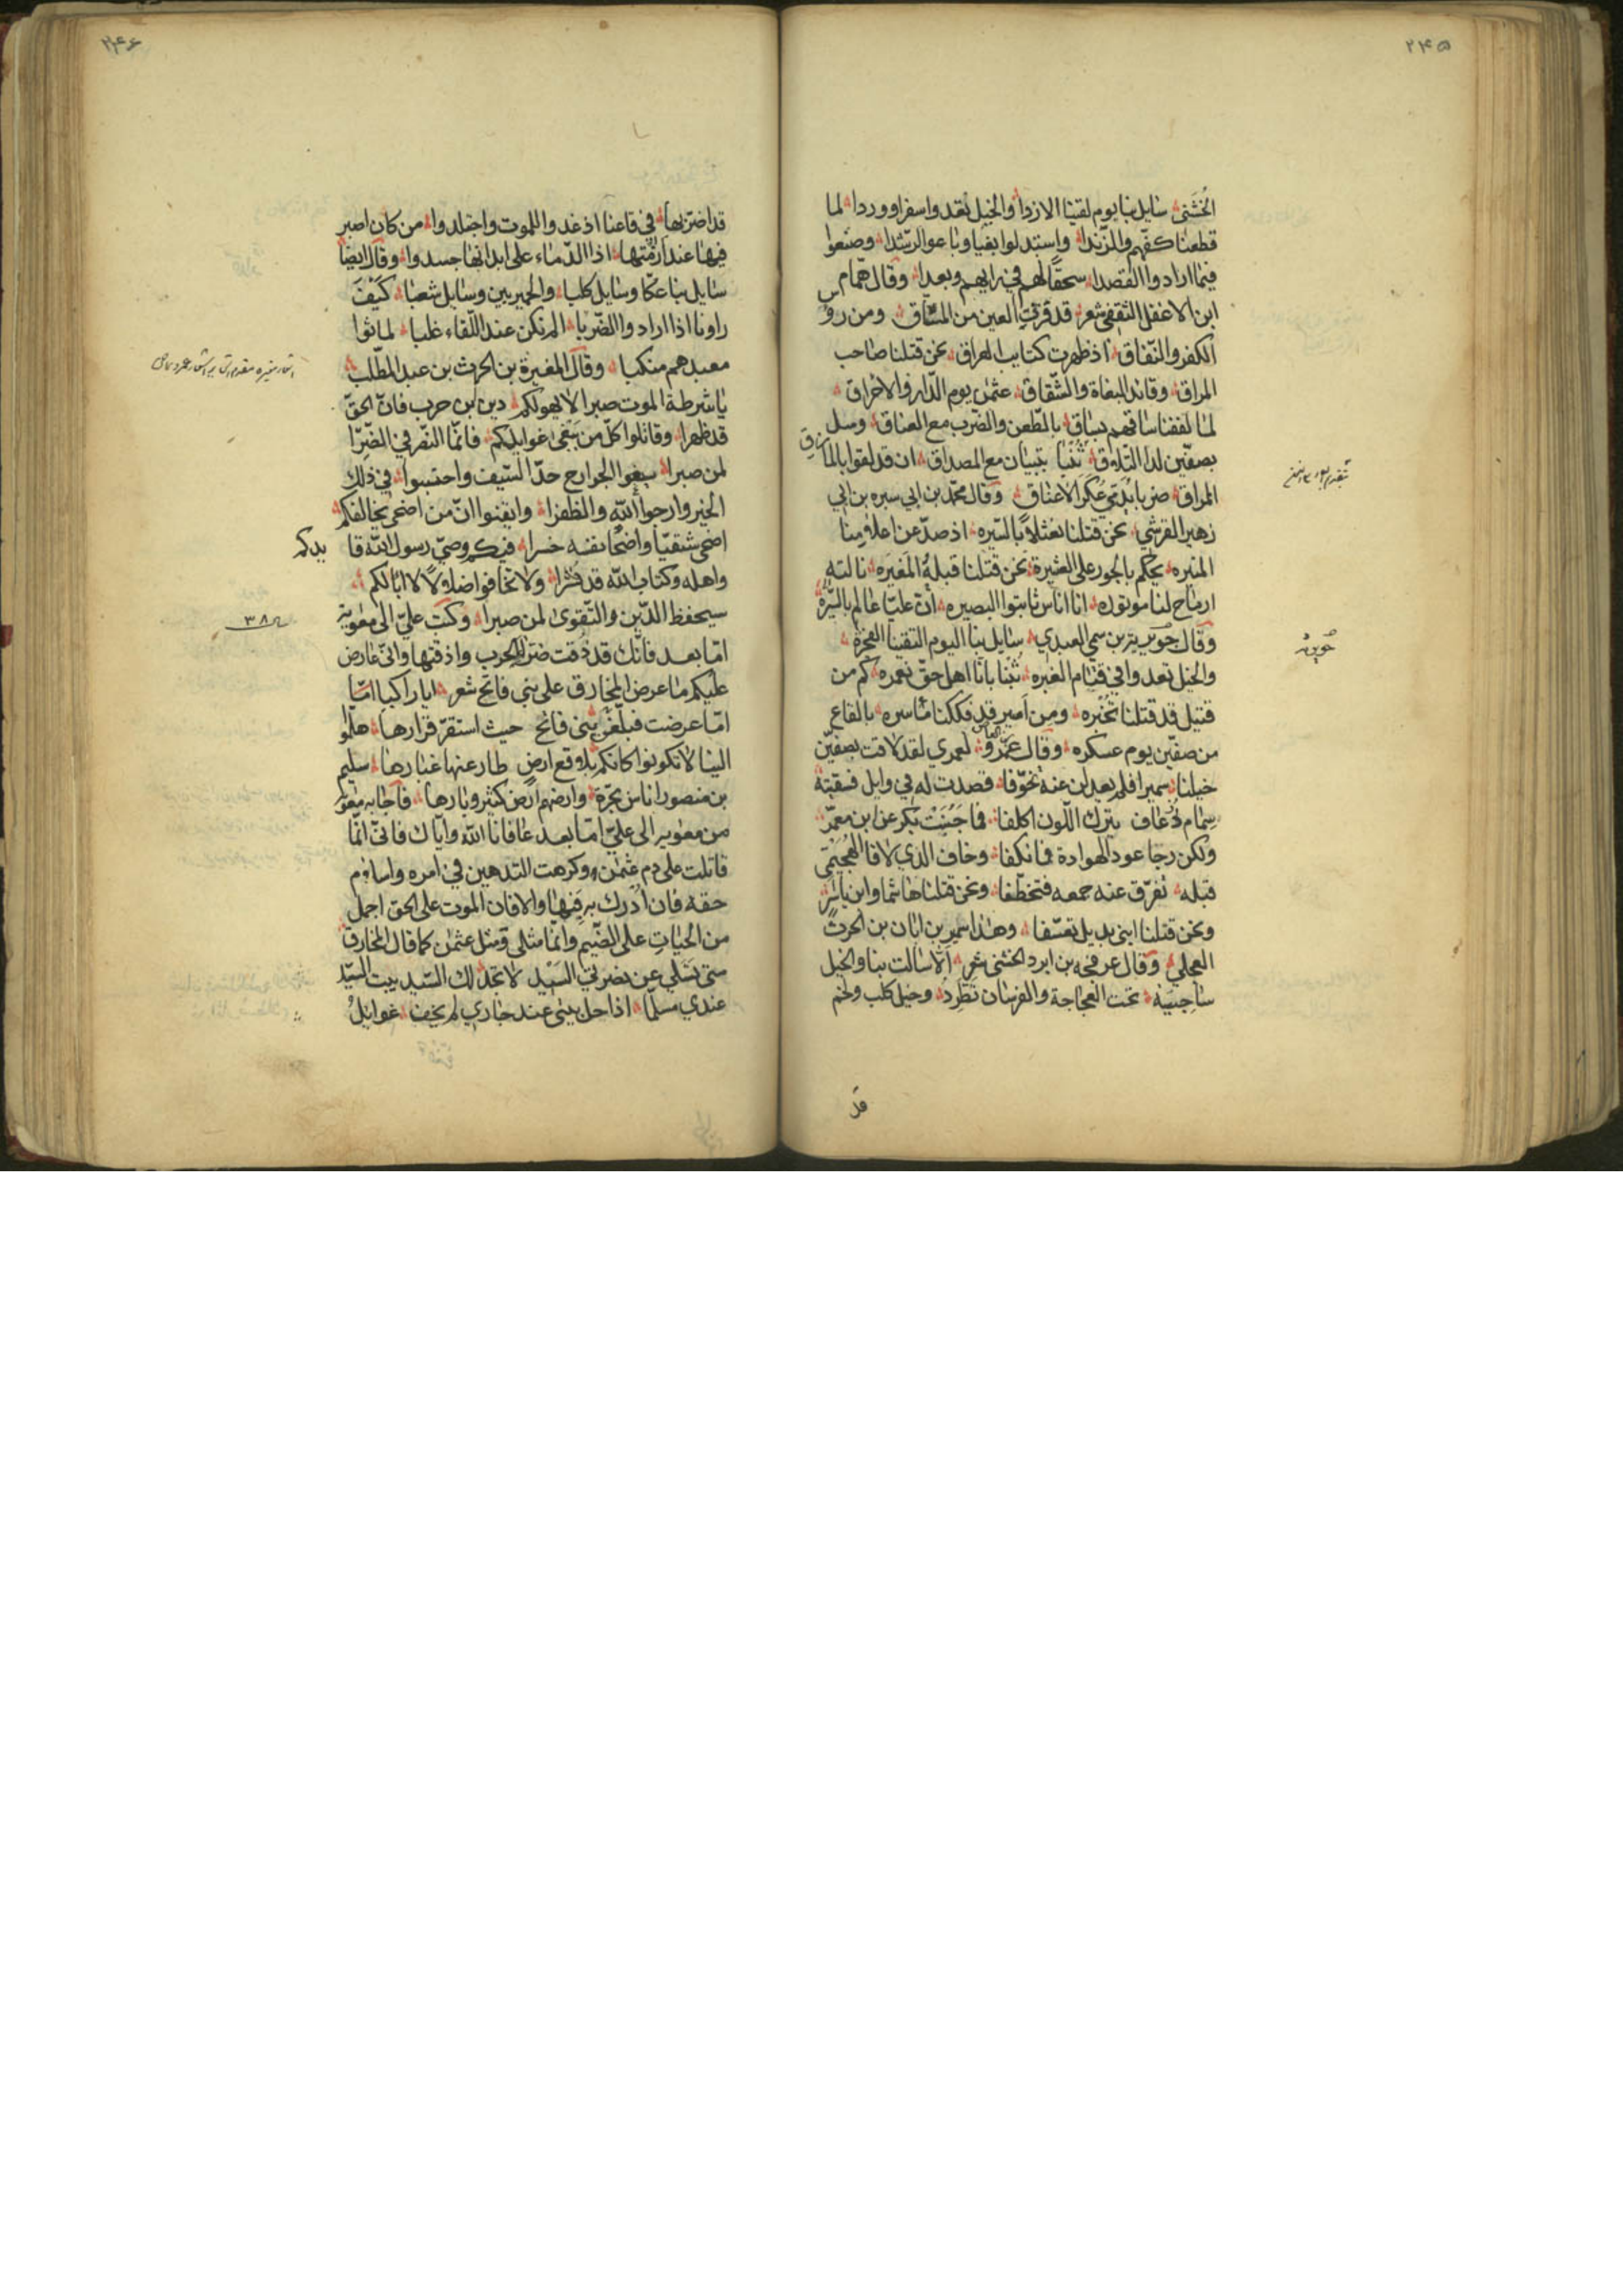 ۲۴۵
الخثنی سایل بنا یوم لقینا الازدا والخیل تعدوا سفرا ووردا لما
قطعنا کفهم والزندا واستبدلوا بغیا وباعوا الرشدا وضیعوا
فیما ارادوا القصدا سحقا لهم فی رایهم وبعدا وقال همام
ابن الاغفل الثقفی شعر قد قرت العین من الفساق ومن رؤس
الکفر والنفاق اذ ظهرت کتایب العراق نحن قتلنا صاحب
المراق وقاید البغاة والشقاق عثمن یوم الدار والاخراق
لما لففنا ساقهم بساق بالطعن والضرب مع العناق وسل
بصفین لدا التلاق تنبا بتبیان مع المصداق ان قد لقوا بالمارق
المراق ضربا یدمی عکر الاعناق وقال محمد بن ابی سبره بن ابی
زهیر القرشی نحن قتلنا نعثلا بالسیره اذ صد عن اعلامنا
المنیره یحکم بالجور علی العشیرة نحن قتلنا قبله المغیره نالته
ارماح لنا موتوره انا اناس ثابتوا البصیره ان علیا عالم بالسیرة
وقال حویریة بن سمی العبدی سایل بنا الیوم التقینا الفجرة
والخیل تعدوا فی قتام الغبره تنبا بانا اهل حق نعمره کم من
قتیل قد قتلنا تخبره ومن امیر قد فککنا ماسره بالقاع
من صفین یوم عسکره وقال عمرو العاص لعمری لقد لاقت بصفین
خیلنا سمیرا فلم یعدلن عنه تخوفا قصدت له فی وایل فسقیته
سمام ذعاف یترک اللون اکلفا فما جبنت بکر عن ابن معمر
ولکن رجا عود الهوادة فانکفا وخاف الذی لاقا الهجیمی
قبله تفرق عنه جمعه فتخطفا ونحن قتلنا هاشما وابن یاسر
ونحن قتلنا ابنی بدیل تعسفا وهذا سمیر بن ابان بن الحرث
العجلی وقال عرفجه بن ابرد الخشنی شعر الا سالت بنا والخیل
ساجیة تحت العجاجة والفرسان تطرد وخیل کلب ولخم
قد
حویریه
۲۴۶
قد اضر بها فی قاعنا اذ غدوا للموت واجتلدوا من کان اصبر
فیها عند ازمتها اذا الدماء علی ابدانها جسدوا وقال ایضا
سایل بنا عکا وسایل کلبا والحمیریین وسایل شعبا کیف
راونا اذا ارادوا الضربا الم نکن عند اللقاء غلبا لما ثوا
معبدهم منکبا وقال المغیرة بن الحرث بن عبد المطلب
یا شرطة الموت صبرا لا یهولکم دین ابن حرب فان الحق
قد ظهرا وقاتلوا کل من یبغی غوایلکم فانما النصر فی الضرا
لمن صبرا سیفوا الجوارح حد السیف واحتسبوا فی ذلک
الخیر وارجوا الله والظفرا وایقنوا ان من اضحی یخالفکم
اضحی شقیا واضحا نفسه خسرا فیکم وصی رسول الله قایدکم
واهله وکتاب الله قد نشرا ولا تخافوا ضلالا لا ابالکم
سیحفظ الدین والتقوی لمن صبرا وکتب علی الی معویة
۳۸
اما بعد فانک قد ذقت ضراء الحرب واذقتها وانی عارض
علیکم ما عرض المخارق علی بنی فاتح شعر ایا راکبا اما
اما عرضت فبلغن بنی فاتح حیث استقر قرارها هلموا
الینا لا تکونوا کانکم بلاقع ارض طار عنها غبارها سلیم
بن منصور اناس بحرة وارضهم ارض کثیر وبارها فاجابه معویة
من معویه الی علی اما بعد عافانا الله وایاک فانی انما
قاتلت علی دم عثمن وکرهت التدهین فی امره واسلام
حقه فان ادرک به فبها والا فان الموت علی الحق اجمل
من الحیات علی الضیم وانما مثلی ومثل عثمن کما قال المخارق
متی تسلی عن نصرتی السید لا تجد لک السید بیت السید
عندی مسلما اذا حل بیتی عند جاری لم یخف غوایل